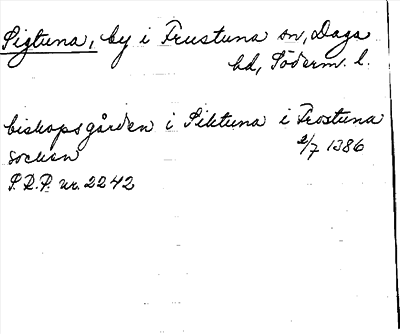 Sigtuna, by i Frustuna sn, Daga
hd, Söderm. l.
biskopsgården i Siktuna i Frostuna
socken 2/7 1386
S.R.P. nr. 2242